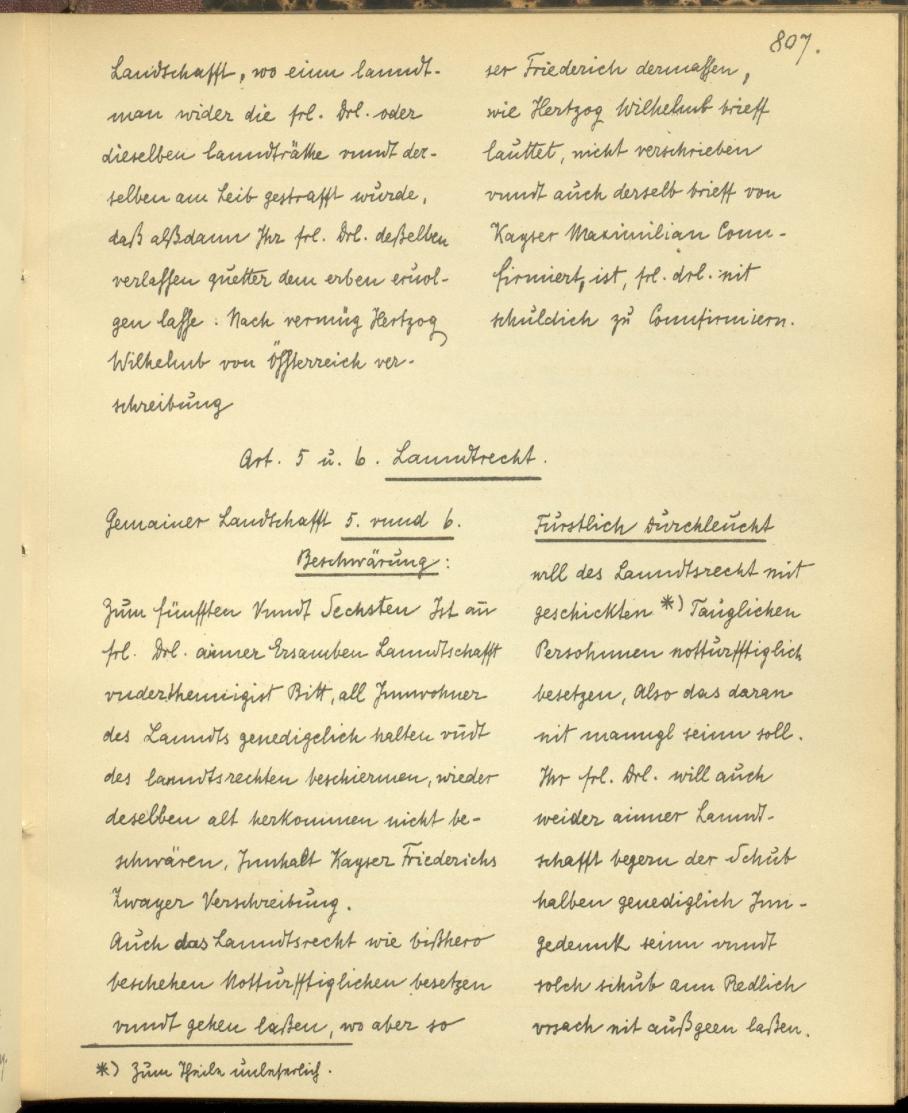 807.
Landschafft, wo einn lanndt-
man wider die frl. Drl. oder
dieselben lanndträthe vnndt der-
selben am Leib gestrafft wurde,
daß alßdann Ihr frl. Drl. deßelben
verlassen guetter dem erben eruol-
gen lasse: Nach vermüg Hertzog
Wilhelmb von Össterreich ver-
schreibung
ser Friederich dermassen,
wie Hertzog Wilhelmb brieff
lauttet, nicht verschrieben
vnndt auch derselb brieff von
Kayser Maximilian Conn-
firmiert, ist, frl. drl. nit
schuldich zu Connfirmiern.
Art. 5 u. 6. Lanndtrecht.
Gemainer Landschafft 5. vnnd 6.
Beschwärung:
Zum fünfften Vnndt Sechsten Ist an
frl. Drl. ainner Ersamben Lanndtschafft
vnderthennigist Bitt, all Innwohner
des Lanndts genedigclich halten vndt
des lanndtsrechten beschiermen, wieder
deselben alt herkommen nicht be-
schwären, Innhalt Kayser Friederichs
Zwayer Verschreibung.
Auch das Lanndtsrecht wie bißhero
beschehen Notturfftiglichen besetzen
vnndt gehen laßen, wo aber so
Fürstlich Durchleucht
will des Lanndtsrecht mit
geschickten *) Tauglichen
Persohnnen notturfftiglich
besetzen, Also das daran
nit manngl seinn soll.
Ihr frl. Drl. will auch
weider ainner Lanndt-
schafft begern der Schub
halben genediglich Inn-
gedennk seinn vnndt
solch schub ann Redlich
vrsach nit außgeen laßen.
*) Zum Theile unleserlich.